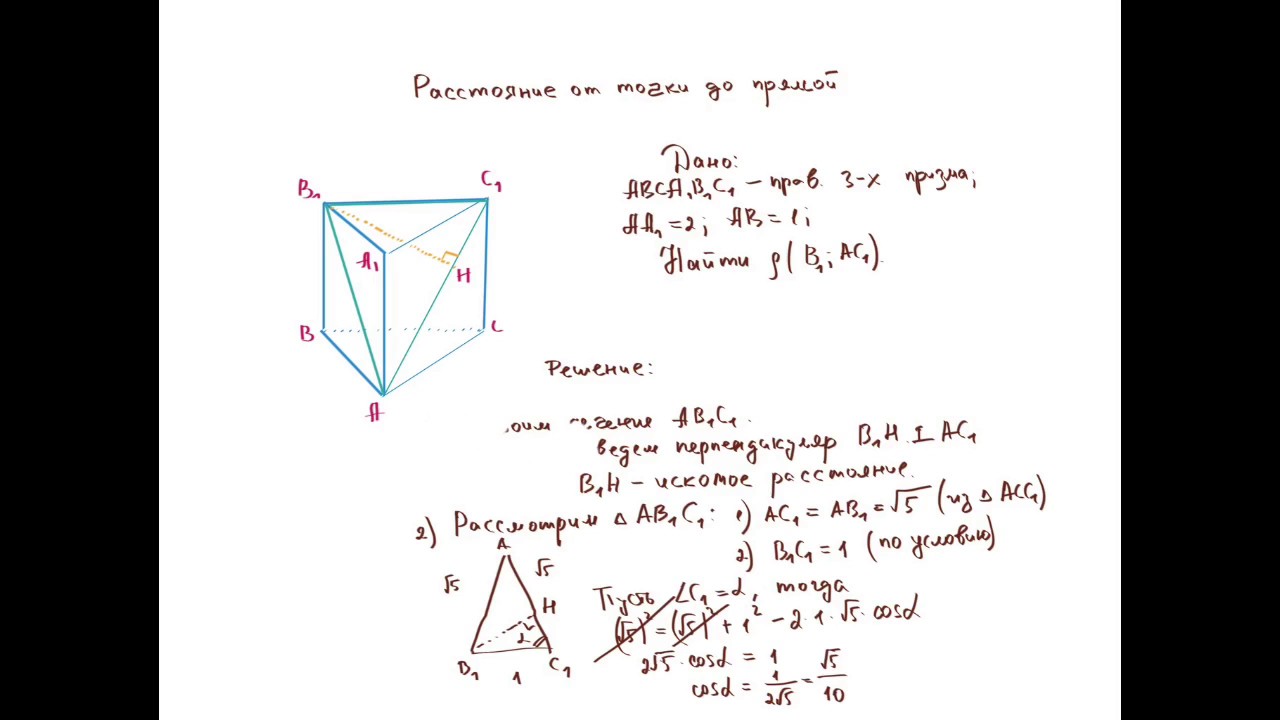 Расстояние от точки до прямой
Дано:
ABCA₁B₁C₁ – прав. 3-х призма;
AA₁ = 2; AB = 1;
Найти ρ(B₁; AC₁).
B₁
C₁
A₁
H
B
C
A
Решение:
AB₁C₁.
ведем перпендикуляр B₁H ⊥ AC₁
B₁H – искомое расстояние.
2) Рассмотрим △ AB₁C₁: 1) AC₁ = AB₁ = √5 (из △ ACC₁)
2) B₁C₁ = 1 (по условию)
A
√5
√5
H
α
B₁
C₁
1
Пусть ∠C₁ = α, тогда
(√5)² = (√5)² + 1² – 2·1·√5·cosα
2√5·cosα = 1
cosα = 1/2√5 = √5/10